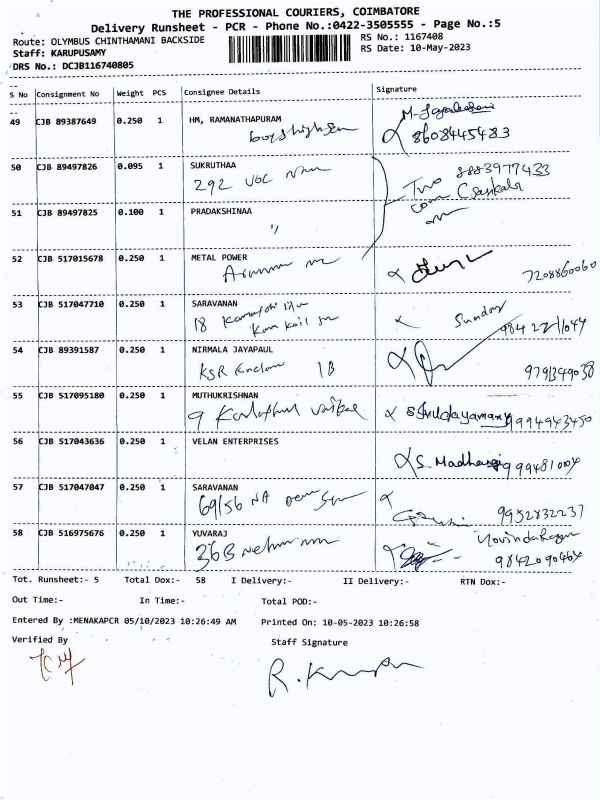 THE PROFESSIONAL COURIERS, COIMBATORE
Delivery Runsheet - PCR - Phone No.:0422-3505555 - Page No.:5
Route: OLYMBUS CHINTHAMANI BACKSIDE RS No.: 1167408
Staff: KARUPUSAMY RS Date: 10-May-2023
DRS No.: DCJB116740805
S No Consignment No Weight PCS Consignee Details Signature
49 CJB 89387649 0.250 1 HM, RAMANATHAPURAM
8608445483
50 CJB 89497826 0.095 1 SUKRUTHAA
292 VOC 8883977433
51 CJB 89497825 0.100 1 PRADAKSHINAA
"
52 CJB 517015678 0.250 1 METAL POWER
7208860060
53 CJB 517047710 0.250 1 SARAVANAN
18 Sundar
54 CJB 89391587 0.250 1 NIRMALA JAYAPAUL
KSR 1B 9791349038
55 CJB 517095180 0.250 1 MUTHUKRISHNAN
9 9994943450
56 CJB 517043636 0.250 1 VELAN ENTERPRISES
S. Madhangi
57 CJB 517047047 0.250 1 SARAVANAN
69/56 NA 9952832237
58 CJB 516975676 0.250 1 YUVARAJ
36B 9842090464
Tot. Runsheet:- 5 Total Dox:- 58 I Delivery:- II Delivery:- RTN Dox:-
Out Time:- In Time:- Total POD:-
Entered By :MENAKAPCR 05/10/2023 10:26:49 AM Printed On: 10-05-2023 10:26:58
Verified By Staff Signature